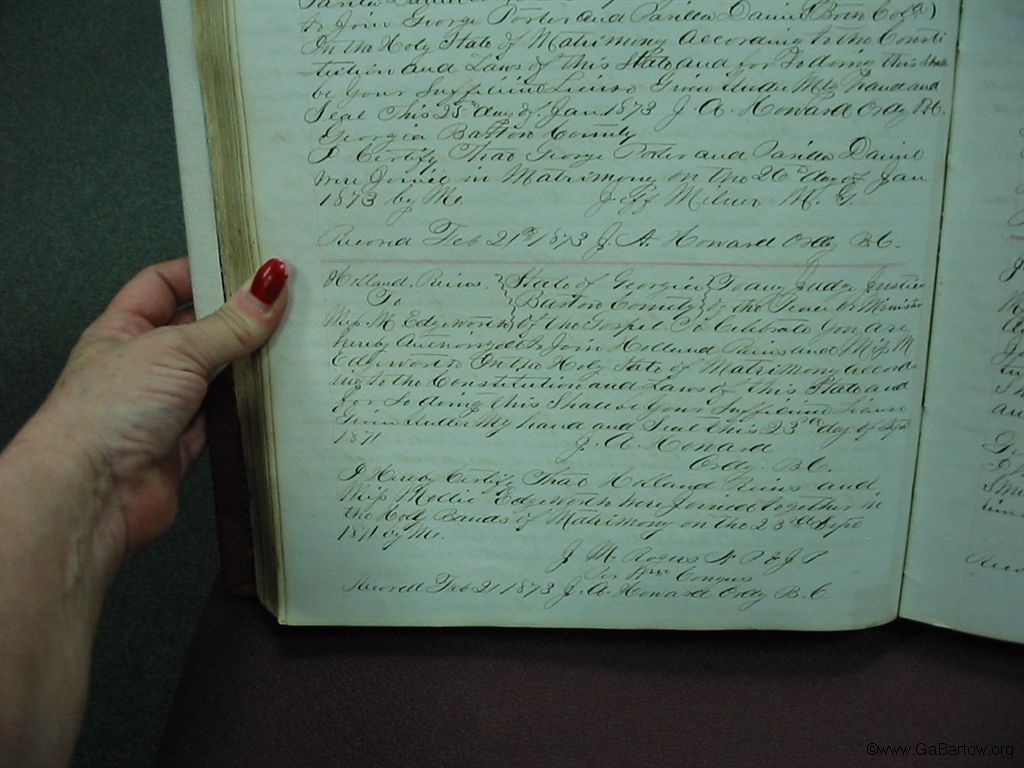 to Join George Porter and Parilla Daniel (Both Cold)
In the Holy State of Matrimony According to the Consti
tution and Laws of this State and for So doing this Shall
be your Sufficient License Given Under My hand and
Seal This 25th day of Jan 1873 J. A. Howard Ordy B.C.
Georgia Bartow County
I Certify That George Porter and Parilla Daniel
were Joined in Matrimony on the 26th day of Jan
1873 by Me. Jeff Milner M. G.
Record Feb 21st 1873 J. A. Howard Ordy B.C.
Holland, State of Georgia To any Judge Justice
To Bartow County of the Peace or Minister
Miss M Edgeworth of the Gospel To Celebrate You are
hereby Authorized to Join Holland and Miss M
Edgeworth In the Holy State of Matrimony accord
ing to the Constitution and Laws of this State and
for So doing this Shall be Your Sufficient License
Given Under My hand and Seal this 23rd day of Sept
1871 J. A. Howard
Ordy. B.C.
I Hereby Certify That Holland and
Miss Mollie Edgeworth were Joined together in
the Holy Bands of Matrimony on the 23rd Sept
1871 by Me.
J M Rogers N P & J P
Record Feb 21 1873 J. A. Howard Ordy B.C.
©www.GaBartow.org